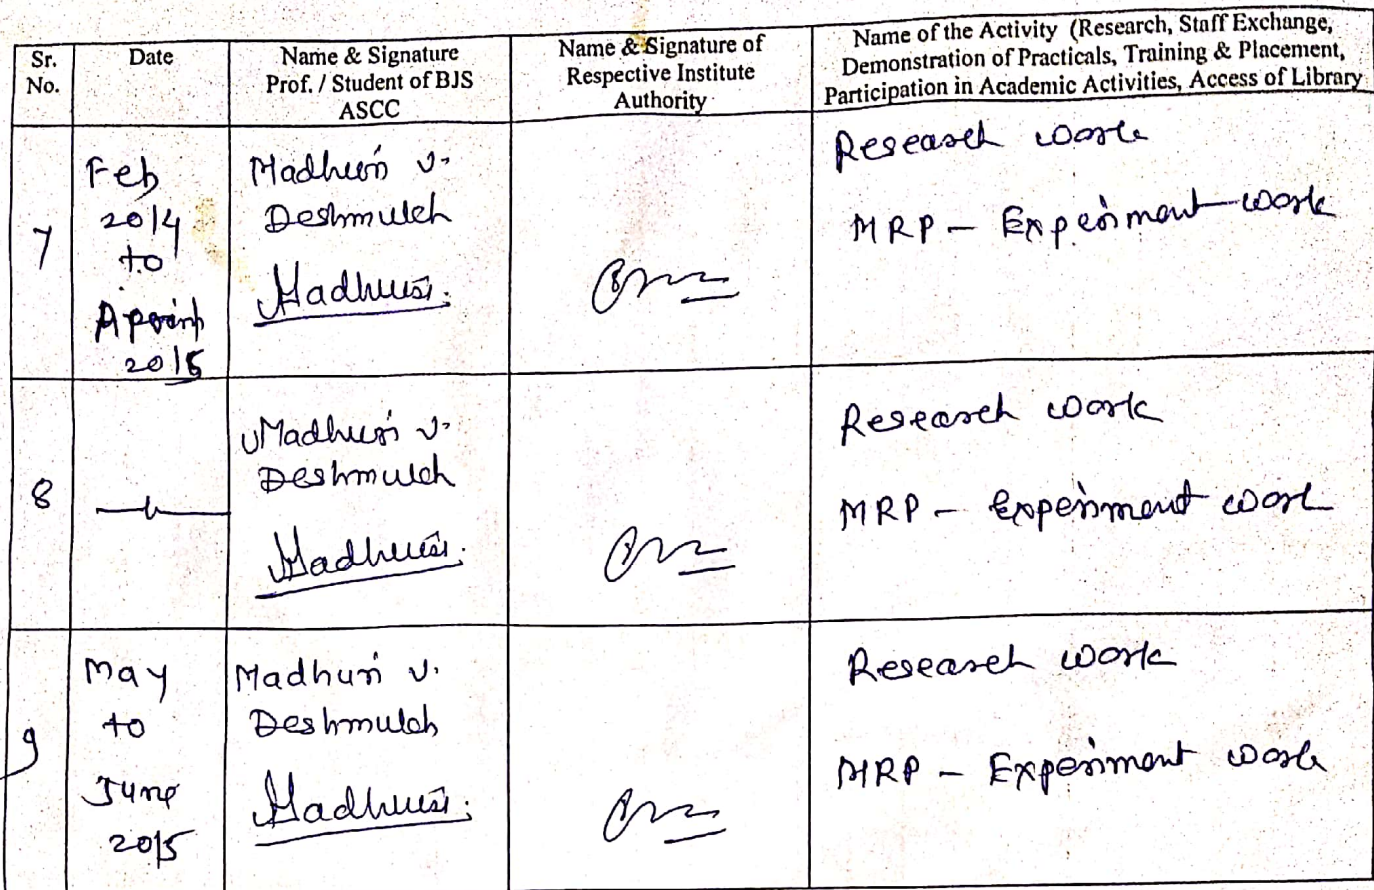 Sr. No.
Date
Name & Signature
Prof. / Student of BJS
ASCC
Name & Signature of
Respective Institute
Authority
Name of the Activity (Research, Staff Exchange,
Demonstration of Practicals, Training & Placement,
Participation in Academic Activities, Access of Library
7
Feb
2014
to
2015
Madhuri V.
Deshmukh
Madhuri
Research work
MRP - Experiment work
8
Madhuri V.
Deshmukh
Madhuri
Research work
MRP - Experiment work
9
May
to
June
2015
Madhuri V.
Deshmukh
Madhuri
Research work
MRP - Experiment work